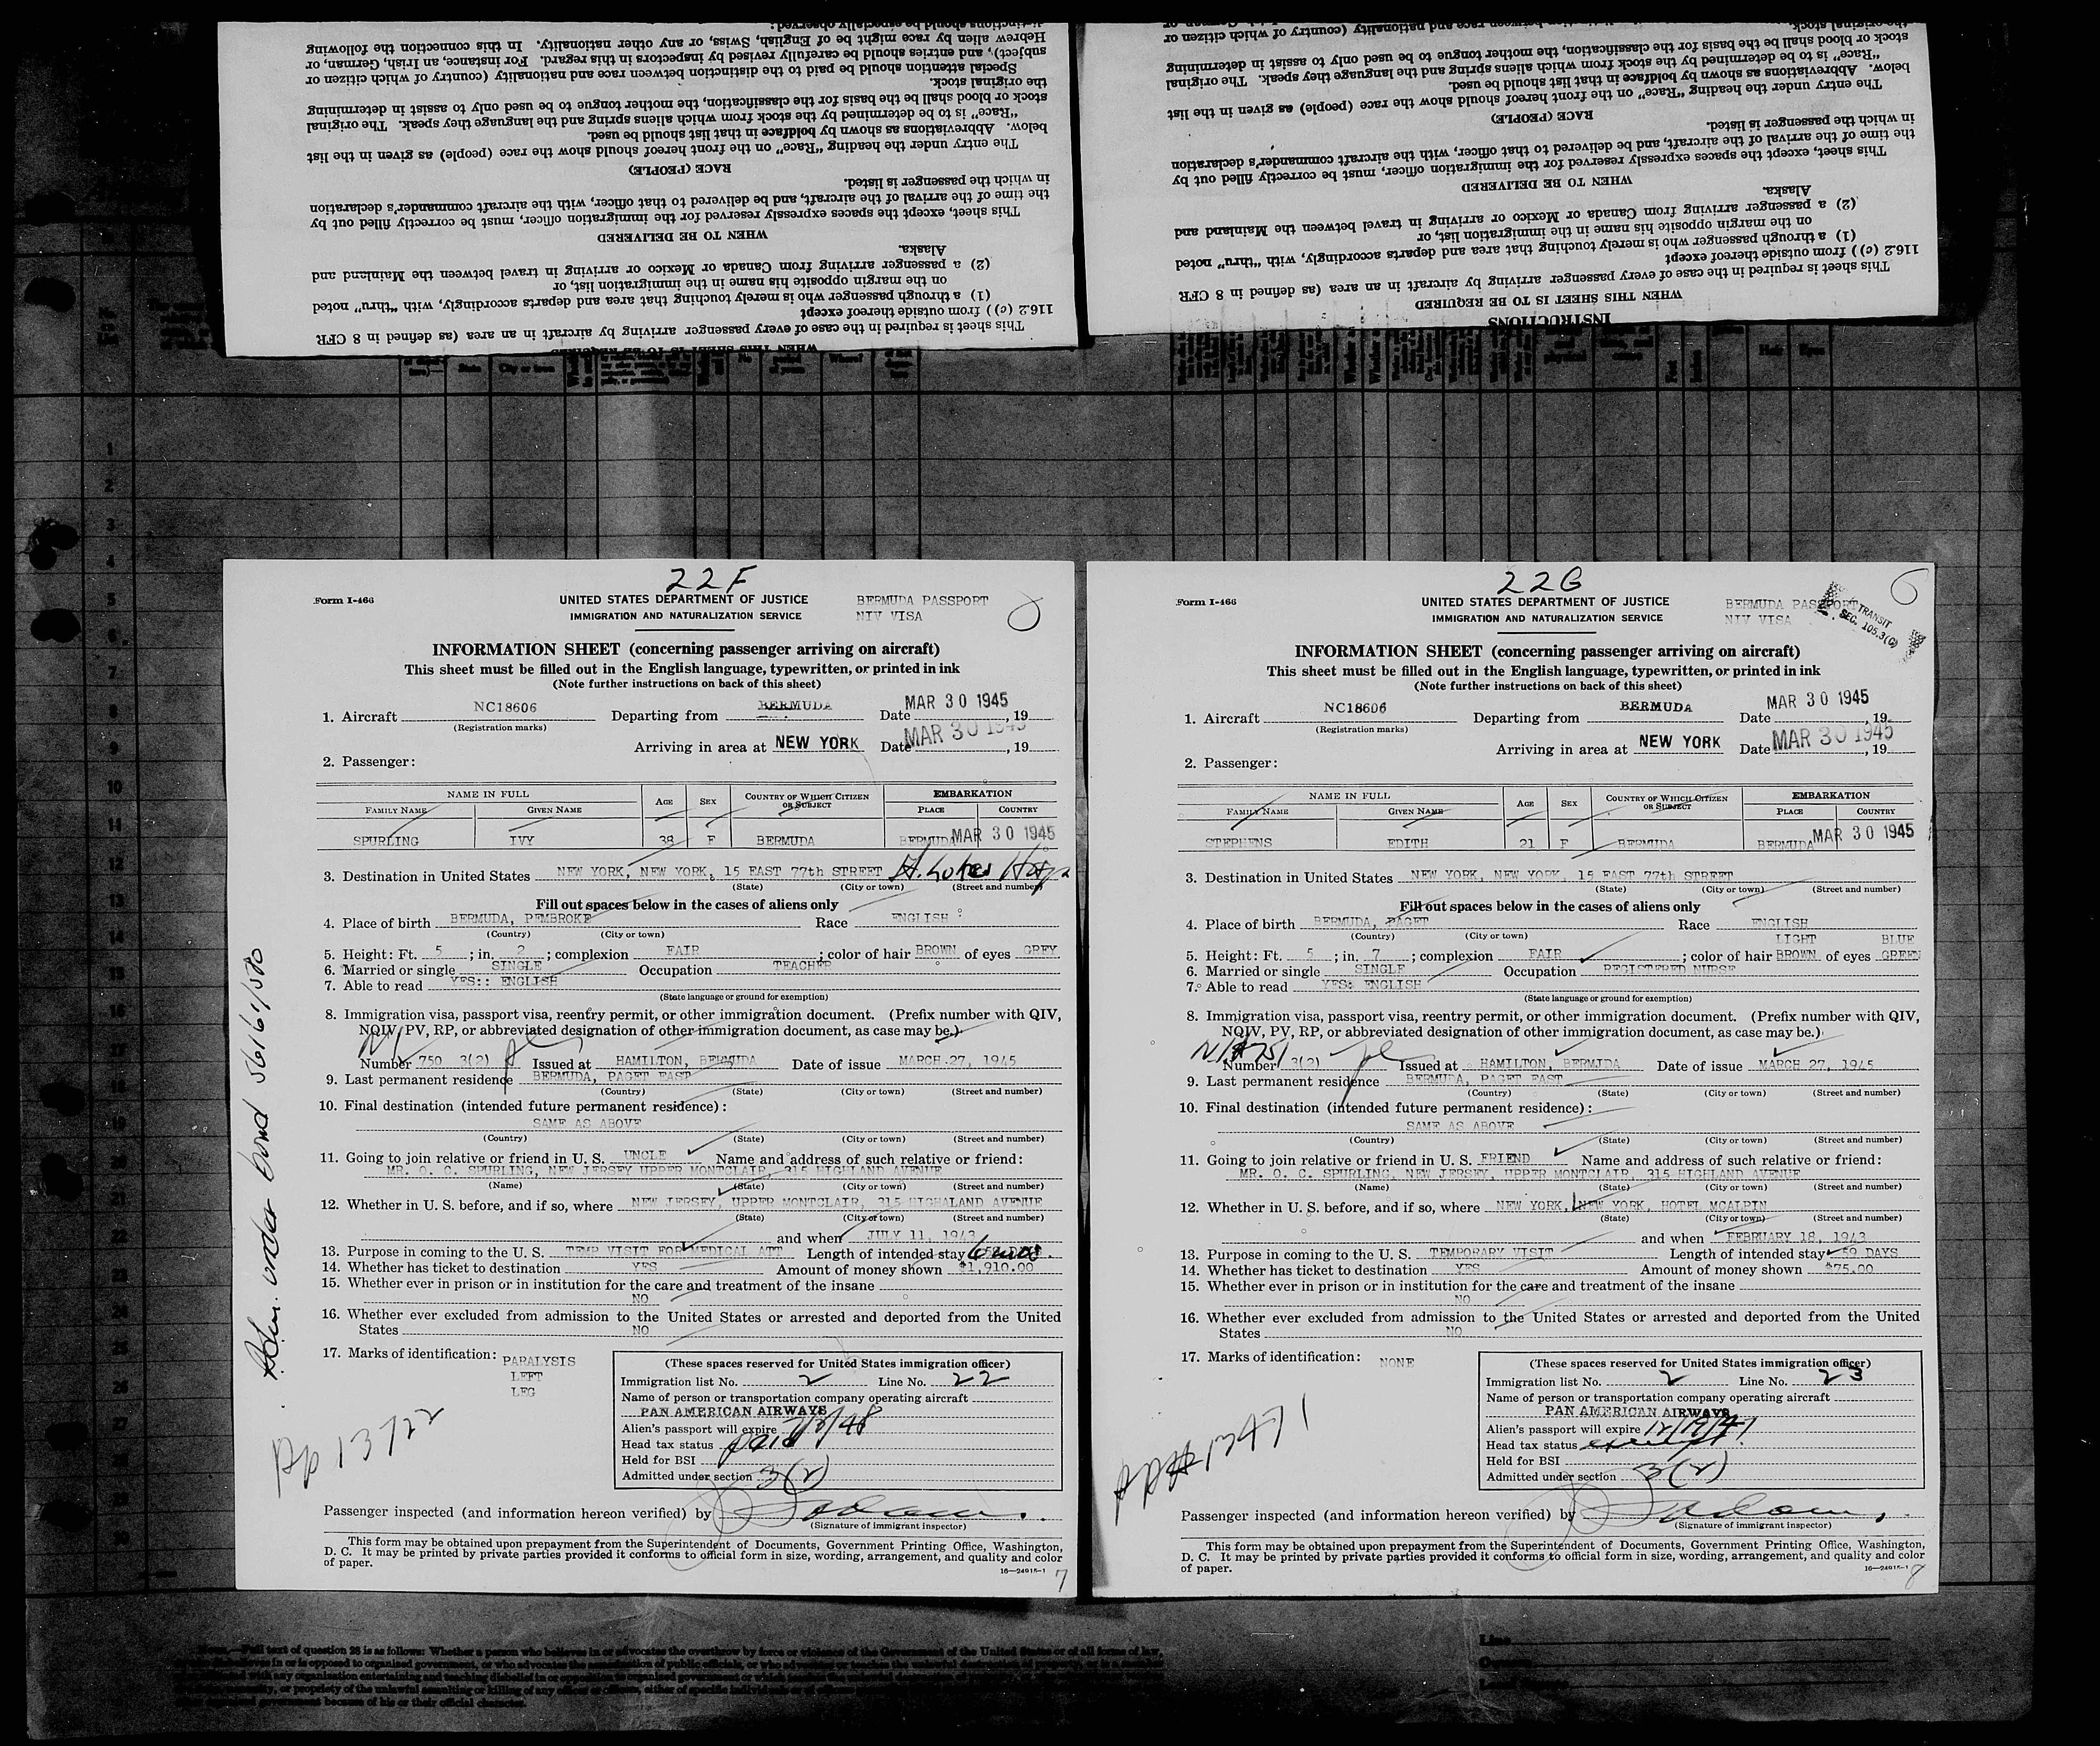 distinctions should be especially observed:
Hebrew alien by race might be of English, Swiss, or any other nationality. In this connection the following
subject), and entries should be carefully revised by inspectors in this regard. For instance, an Irish, German, or
Special attention should be paid to the distinction between race and nationality (country of which citizen or
the original stock.
stock or blood shall be the basis for the classification, the mother tongue to be used only to assist in determining
"Race" is to be determined by the stock from which aliens spring and the language they speak. The original
below. Abbreviations as shown by boldface in that list should be used.
The entry under the heading "Race" on the front hereof should show the race (people) as given in the list
RACE (PEOPLE)
in which the passenger is listed.
the time of the arrival of the aircraft, and be delivered to that officer, with the aircraft commander's declaration
This sheet, except the spaces expressly reserved for the immigration officer, must be correctly filled out by
WHEN TO BE DELIVERED
Alaska.
(2) a passenger arriving from Canada or Mexico or arriving in travel between the Mainland and
on the margin opposite his name in the immigration list, or
(1) a through passenger who is merely touching that area and departs accordingly, with "thru" noted
116.2 (c)) from outside thereof except
This sheet is required in the case of every passenger arriving by aircraft in an area (as defined in 8 CFR
WHEN THIS SHEET IS TO BE REQUIRED
the original stock.
stock or blood shall be the basis for the classification, the mother tongue to be used only to assist in determining
"Race" is to be determined by the stock from which aliens spring and the language they speak. The original
below. Abbreviations as shown by boldface in that list should be used.
The entry under the heading "Race" on the front hereof should show the race (people) as given in the list
RACE (PEOPLE)
in which the passenger is listed.
the time of the arrival of the aircraft, and be delivered to that officer, with the aircraft commander's declaration
This sheet, except the spaces expressly reserved for the immigration officer, must be correctly filled out by
WHEN TO BE DELIVERED
Alaska.
(2) a passenger arriving from Canada or Mexico or arriving in travel between the Mainland and
on the margin opposite his name in the immigration list, or
(1) a through passenger who is merely touching that area and departs accordingly, with "thru" noted
116.2 (c)) from outside thereof except
This sheet is required in the case of every passenger arriving by aircraft in an area (as defined in 8 CFR
WHEN THIS SHEET IS TO BE REQUIRED
INSTRUCTIONS
22F
Form I-466 UNITED STATES DEPARTMENT OF JUSTICE BERMUDA PASSPORT
IMMIGRATION AND NATURALIZATION SERVICE NIV VISA
INFORMATION SHEET (concerning passenger arriving on aircraft)
This sheet must be filled out in the English language, typewritten, or printed in ink
(Note further instructions on back of this sheet)
1. Aircraft NC18606 Departing from BERMUDA Date MAR 30 1945, 19
(Registration marks)
Arriving in area at NEW YORK Date MAR 30 1945, 19
2. Passenger:
NAME IN FULL AGE SEX COUNTRY OF WHICH CITIZEN OR SUBJECT EMBARKATION
FAMILY NAME GIVEN NAME PLACE COUNTRY
SPURLING IVY 38 F BERMUDA BERMUDA MAR 30 1945
3. Destination in United States NEW YORK, NEW YORK, 15 EAST 77th STREET
(State) (City or town) (Street and number)
Fill out spaces below in the cases of aliens only
4. Place of birth BERMUDA, PEMBROKE Race ENGLISH
(Country) (City or town)
5. Height: Ft. 5 ; in. 2 ; complexion FAIR ; color of hair BROWN of eyes GREY
6. Married or single SINGLE Occupation TEACHER
7. Able to read YES:: ENGLISH
(State language or ground for exemption)
8. Immigration visa, passport visa, reentry permit, or other immigration document. (Prefix number with QIV,
NQIV, PV, RP, or abbreviated designation of other immigration document, as case may be.)
Number 750 3(2) Issued at HAMILTON, BERMUDA Date of issue MARCH 27, 1945
9. Last permanent residence BERMUDA, PAGET EAST
(Country) (State) (City or town) (Street and number)
10. Final destination (intended future permanent residence):
SAME AS ABOVE
(Country) (State) (City or town) (Street and number)
11. Going to join relative or friend in U. S. UNCLE Name and address of such relative or friend:
MR. O. C. SPURLING, NEW JERSEY UPPER MONTCLAIR, 315 HIGHLAND AVENUE
(Name) (State) (City or town) (Street and number)
12. Whether in U. S. before, and if so, where NEW JERSEY, UPPER MONTCLAIR, 315 HIGHALAND AVENUE
(State) (City or town) (Street and number)
and when JULY 11, 1943
13. Purpose in coming to the U. S. TEMP VISIT FOR MEDICAL ATT Length of intended stay 6 mos
14. Whether has ticket to destination YES Amount of money shown $1,910.00
15. Whether ever in prison or in institution for the care and treatment of the insane
NO
16. Whether ever excluded from admission to the United States or arrested and deported from the United
States NO
17. Marks of identification: PARALYSIS
LEFT
LEG
(These spaces reserved for United States immigration officer)
Immigration list No. 2 Line No. 22
Name of person or transportation company operating aircraft
PAN AMERICAN AIRWAYS
Alien's passport will expire
Head tax status paid
Held for BSI
Admitted under section 3(2)
Passenger inspected (and information hereon verified) by
(Signature of immigrant inspector)
This form may be obtained upon prepayment from the Superintendent of Documents, Government Printing Office, Washington,
D. C. It may be printed by private parties provided it conforms to official form in size, wording, arrangement, and quality and color
of paper.
16—24915-1 7
Adm. under bond 5616/580
Pp 13722
22G
Form I-466 UNITED STATES DEPARTMENT OF JUSTICE BERMUDA PASSPORT
IMMIGRATION AND NATURALIZATION SERVICE NIV VISA
TRANSIT
SEC. 105.3(G)
INFORMATION SHEET (concerning passenger arriving on aircraft)
This sheet must be filled out in the English language, typewritten, or printed in ink
(Note further instructions on back of this sheet)
1. Aircraft NC18606 Departing from BERMUDA Date MAR 30 1945, 19
(Registration marks)
Arriving in area at NEW YORK Date MAR 30 1945, 19
2. Passenger:
NAME IN FULL AGE SEX COUNTRY OF WHICH CITIZEN OR SUBJECT EMBARKATION
FAMILY NAME GIVEN NAME PLACE COUNTRY
STEPHENS EDITH 21 F BERMUDA BERMUDA MAR 30 1945
3. Destination in United States NEW YORK, NEW YORK, 15 EAST 77th STREET
(State) (City or town) (Street and number)
Fill out spaces below in the cases of aliens only
4. Place of birth BERMUDA, PAGET Race ENGLISH
(Country) (City or town) LIGHT BLUE
5. Height: Ft. 5 ; in. 7 ; complexion FAIR ; color of hair BROWN of eyes GREEN
6. Married or single SINGLE Occupation REGISTERED NURSE
7. Able to read YES: ENGLISH
(State language or ground for exemption)
8. Immigration visa, passport visa, reentry permit, or other immigration document. (Prefix number with QIV,
NQIV, PV, RP, or abbreviated designation of other immigration document, as case may be.)
Number 751 3(2) Issued at HAMILTON, BERMUDA Date of issue MARCH 27, 1945
9. Last permanent residence BERMUDA, PAGET EAST
(Country) (State) (City or town) (Street and number)
10. Final destination (intended future permanent residence):
SAME AS ABOVE
(Country) (State) (City or town) (Street and number)
11. Going to join relative or friend in U. S. FRIEND Name and address of such relative or friend:
MR. O. C. SPURLING, NEW JERSEY, UPPER MONTCLAIR, 315 HIGHLAND AVENUE
(Name) (State) (City or town) (Street and number)
12. Whether in U. S. before, and if so, where NEW YORK, NEW YORK, HOTEL MCALPIN
(State) (City or town) (Street and number)
and when FEBRUARY 18, 1943
13. Purpose in coming to the U. S. TEMPORARY VISIT Length of intended stay 59 DAYS
14. Whether has ticket to destination YES Amount of money shown $75.00
15. Whether ever in prison or in institution for the care and treatment of the insane
NO
16. Whether ever excluded from admission to the United States or arrested and deported from the United
States NO
17. Marks of identification: NONE
(These spaces reserved for United States immigration officer)
Immigration list No. 2 Line No. 23
Name of person or transportation company operating aircraft
PAN AMERICAN AIRWAYS
Alien's passport will expire
Head tax status exempt
Held for BSI
Admitted under section 3(2)
Passenger inspected (and information hereon verified) by
(Signature of immigrant inspector)
This form may be obtained upon prepayment from the Superintendent of Documents, Government Printing Office, Washington,
D. C. It may be printed by private parties provided it conforms to official form in size, wording, arrangement, and quality and color
of paper.
16—24915-1